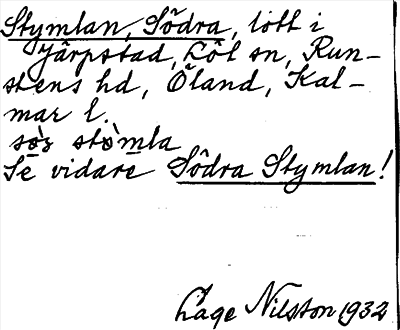 Stymlan, Södra, lott i
Järpstad, Löt sn, Run-
stens hd, Öland, Kal-
mar l.
sø̀r stø̀mla
Se vidare Södra Stymlan!
Lage Nilsson 1932